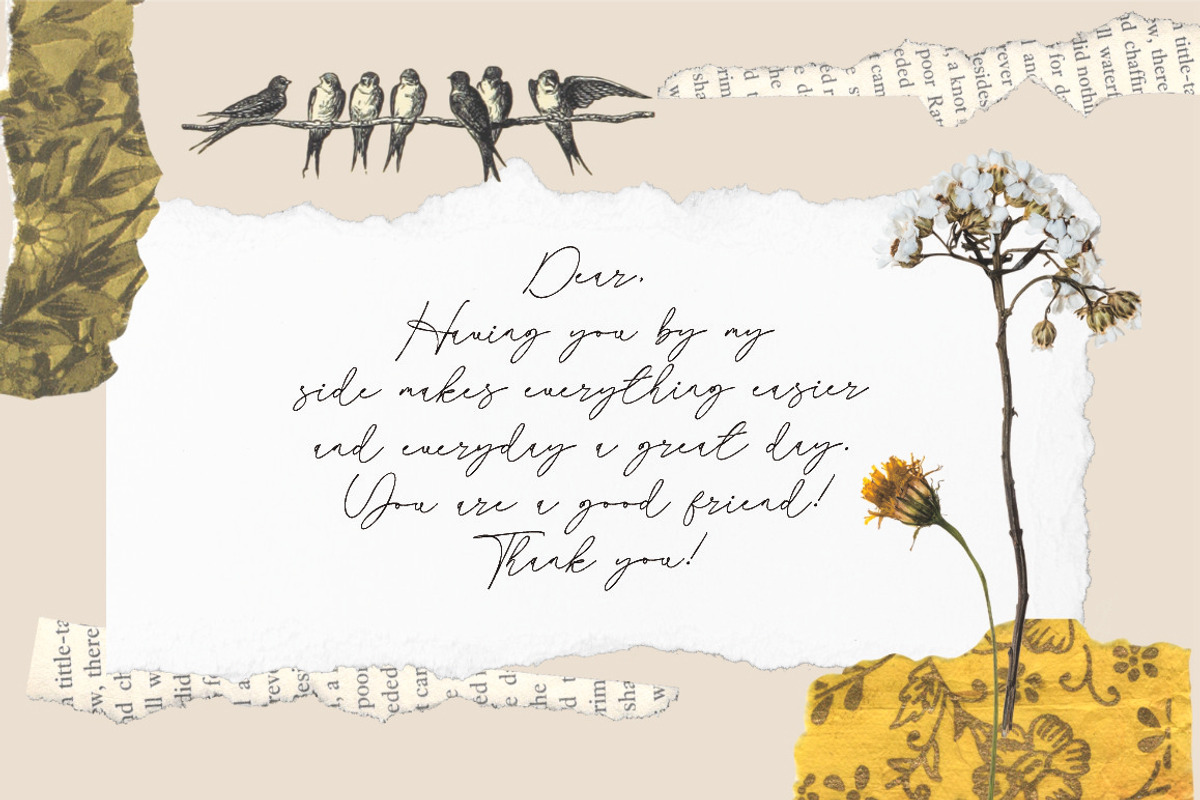 Dear,
Having you by my
side makes everything easier
and everyday a great day.
You are a good friend!
Thank you!